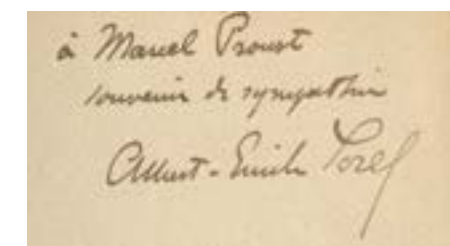 à Marcel Proust
souvenir de sympathie
Albert-Emile Sorel